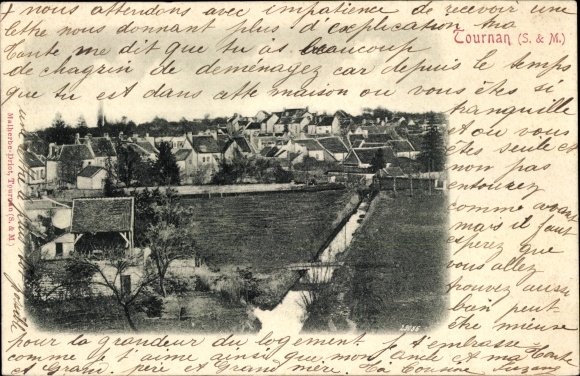 + nous attendons avec impatience de recevoir une
lettre nous donnant plus d'explication ma
Tante me dit que tu as beaucoup
de chagrin de déménagez car depuis le temps
que tu est dans cette maison ou vous êtes si
Tournan (S. & M.)
tranquille
et ou vous
êtes seule et
non pas
entourez
comme avant
mais il faut
esperez que
vous allez
trouvez aussi
bien peut-
être mieuse
pour la grandeur du logement. Je t'embrasse
comme je t'aime ainsi que mon oncle et ma Tante
et Grand père et Grand mère. Ta Cousine Suzanne
Malherbe-Driot, Tournan (S. & M.)